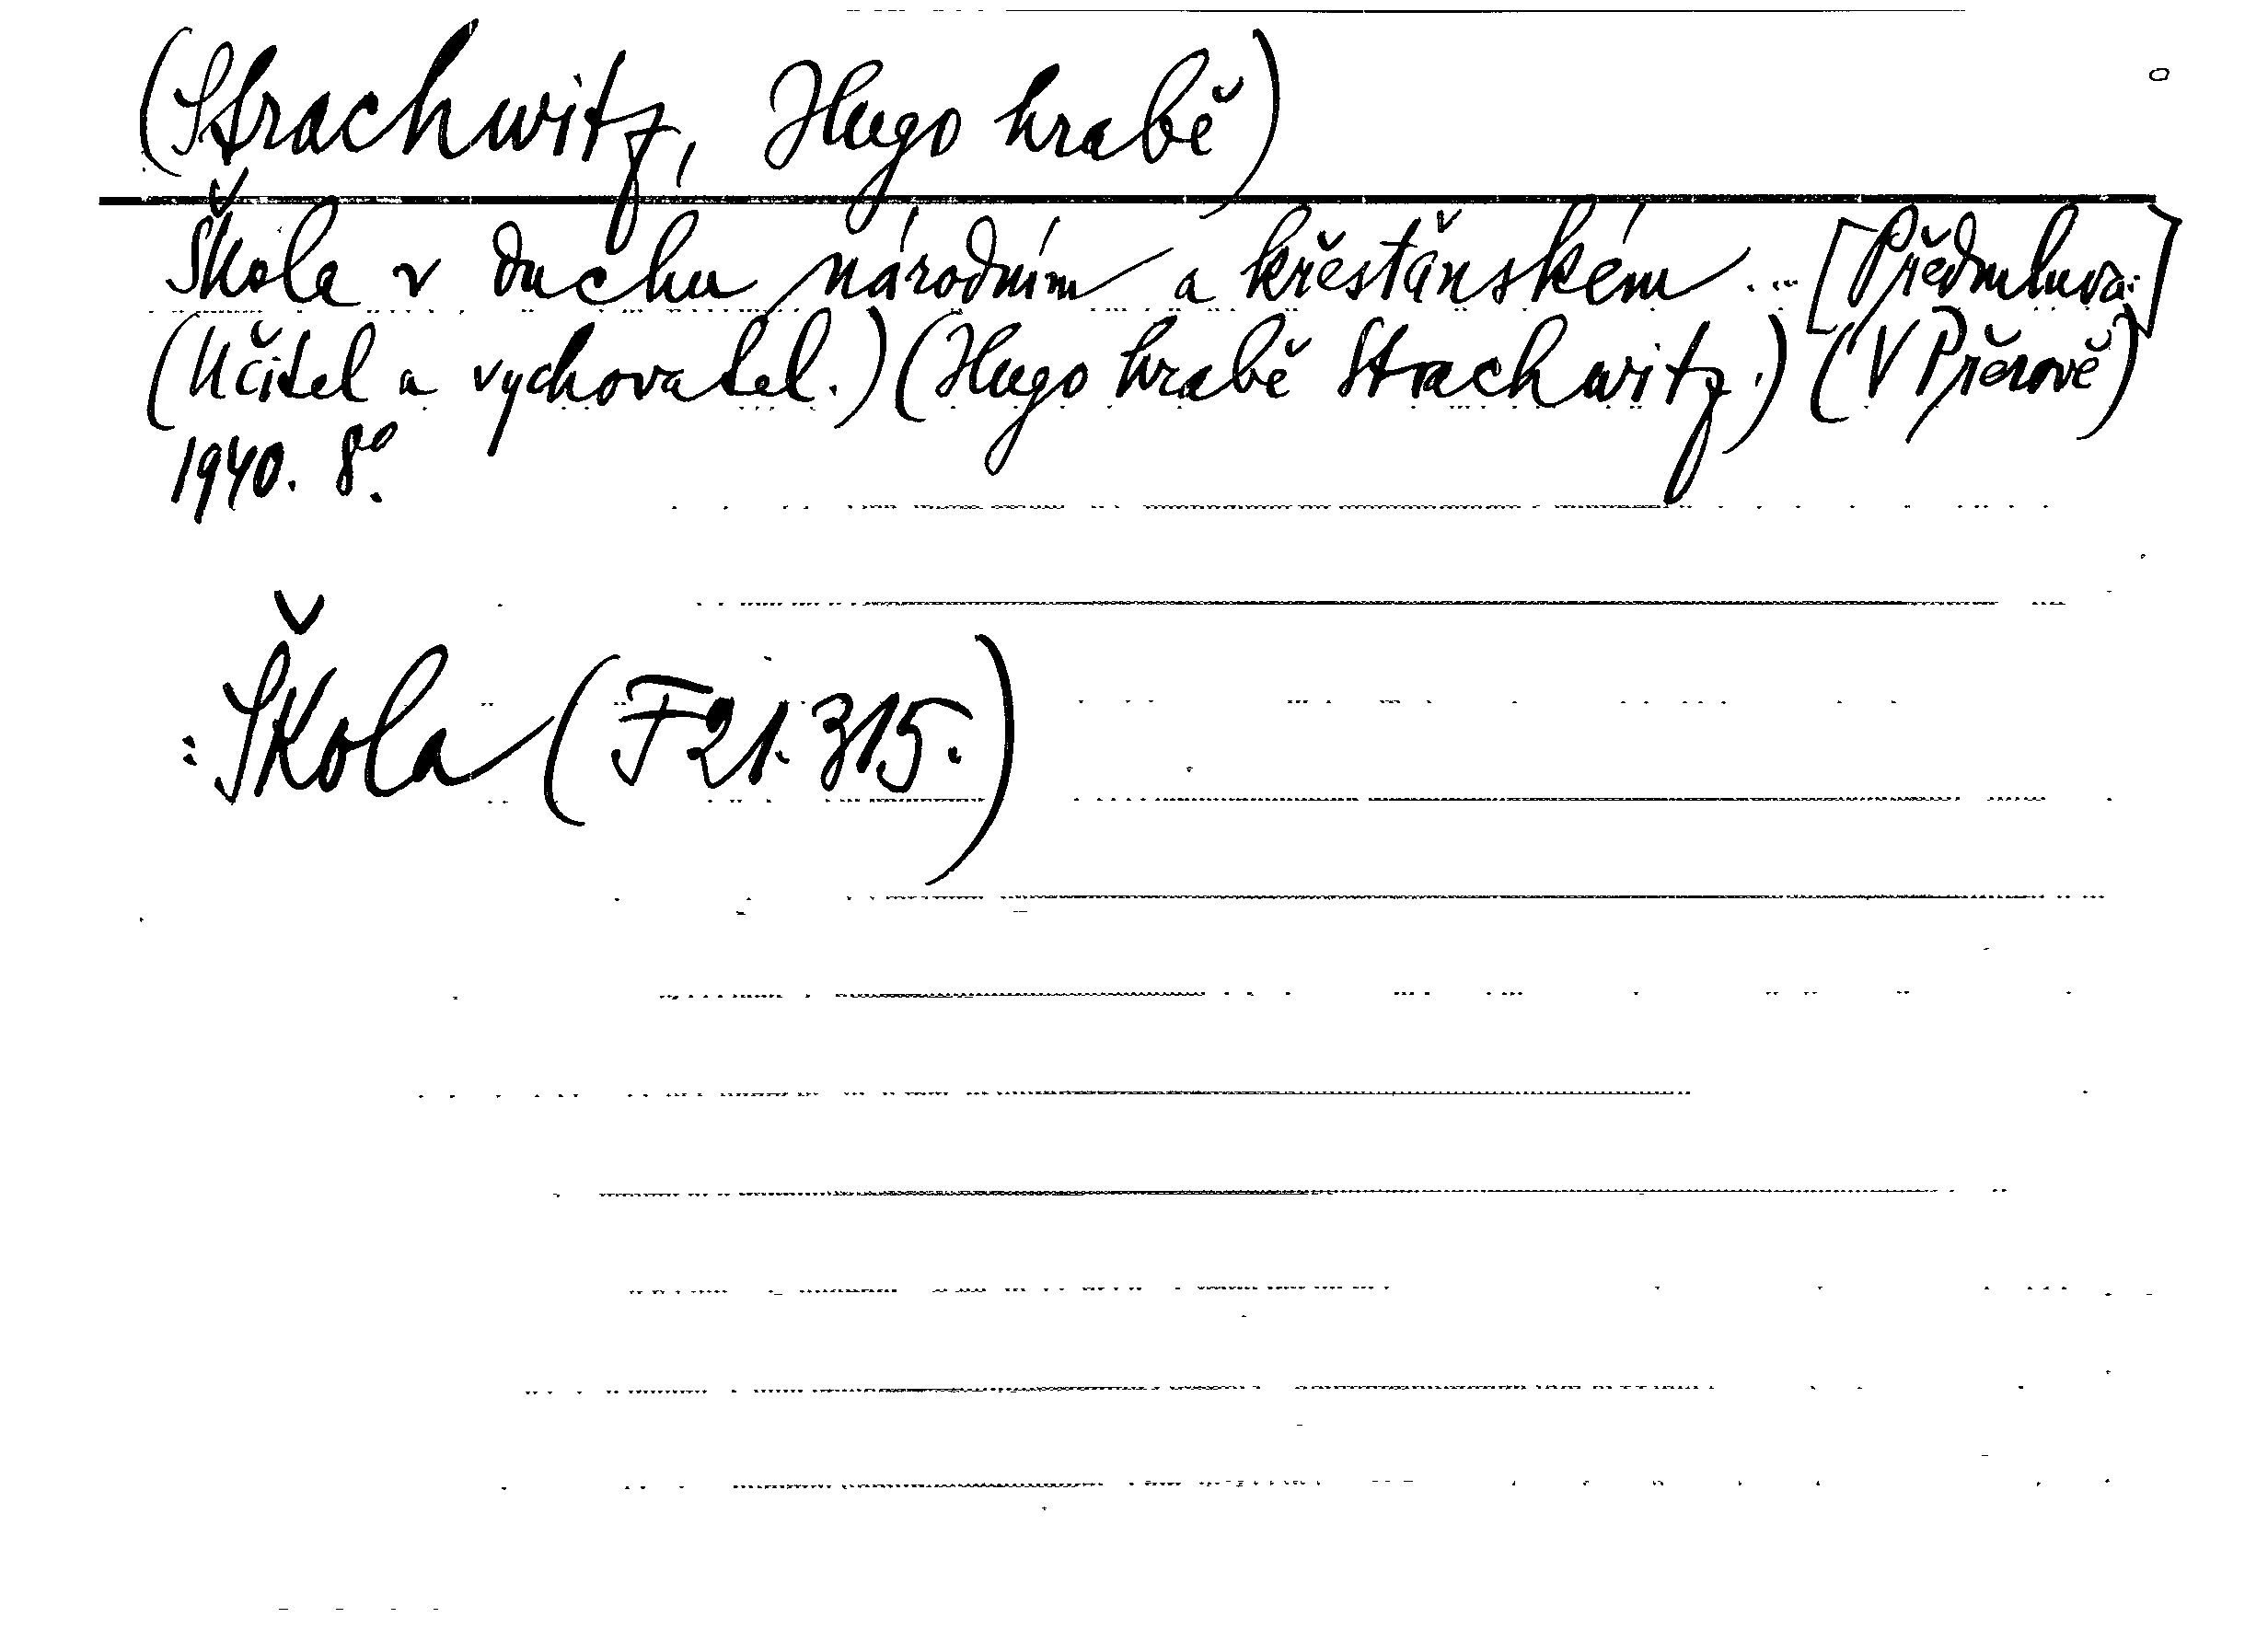 (Strachwitz, Hugo hrabě)
Škola v duchu národním a křesťanském ... [Předmluva:]
(Učitel a vychovatel.) (Hugo hrabě Strachwitz.) (V Přerově)
1940. 8º.
: Škola (F 21.315.)